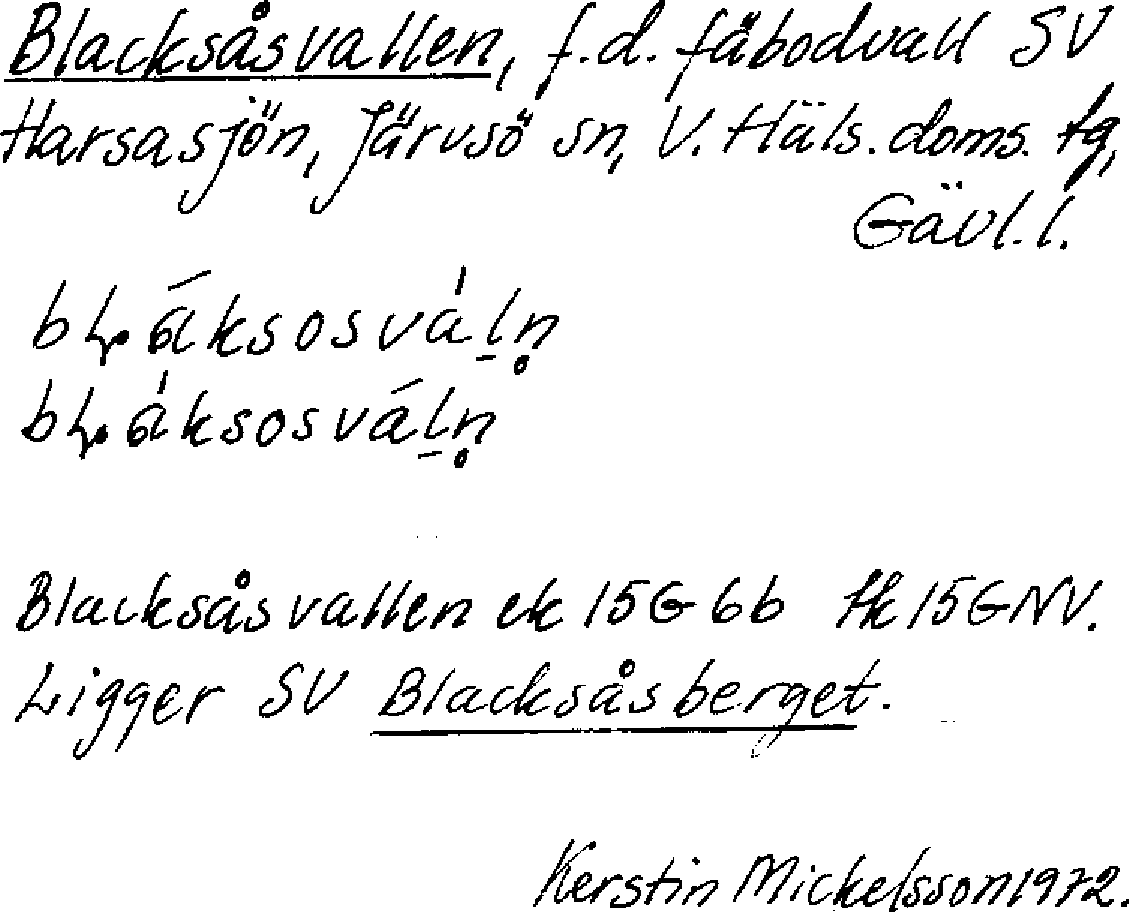 Blacksåsvallen, f.d. fäbodvall SV
Harsasjön, Järvsö sn, V. Häls. doms. tg,
Gävl. l.
bḷáksosváḷn̥
bḷáksosváḷn̥
Blacksåsvallen ek 15G 6b tk 15G NV.
Ligger SV Blacksåsberget.
Kerstin Mickelsson 1972.